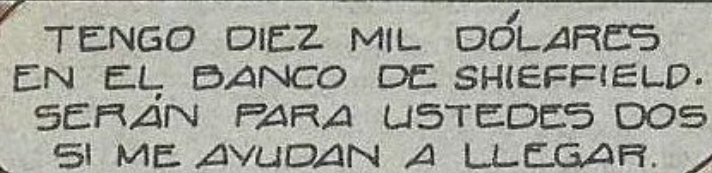 TENGO DIEZ MIL DÓLARES
EN EL BANCO DE SHIEFFIELD.
SERÁN PARA USTEDES DOS
SI ME AYUDAN A LLEGAR.